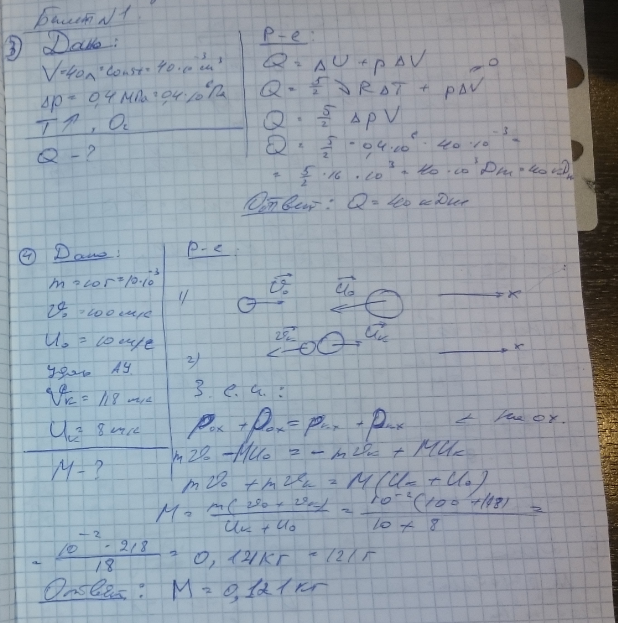 Билет №1.
③ Дано:
V=40л=const=40·10⁻³м³
Δp=0,4МПа=0,4·10⁶Па
T↑, O₂
Q-?
Р-е:
Q = ΔU + pΔV
Q = 5/2 νRΔT + pΔV →0
Q = 5/2 ΔpV
Q = 5/2 · 0,4·10⁶ · 40·10⁻³ =
= 5/2 · 16 · 10³ = 40·10³ Дж = 40 кДж
Ответ: Q = 40 кДж
④ Дано:
m=10г=10·10⁻³
v₀=100м/с
U₀=10м/с
удар АУ
vк=118м/с
Uк=8м/с
M-?
Р-е:
1) v₀ U₀ x
2) vк Uк x
З.с.и.:
p₀ₓ + p₀ₓ = pкₓ + pкₓ ← на ох.
mv₀ - MU₀ = -mvк + MUк
mv₀ + mvк = M(Uк + U₀)
M = m(v₀+vк)/(Uк+U₀) = 10⁻²(100+118)/(10+8) =
= 10⁻²·218/18 = 0,121кг = 121г
Ответ: M = 0,121кг